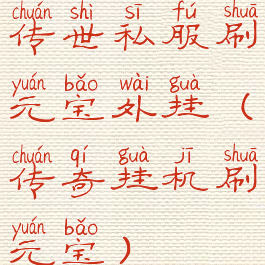 chuán shì sī fú shuā
传世私服刷
yuán bǎo wài guà
元宝外挂（
chuán qí guà jī shuā
传奇挂机刷
yuán bǎo
元宝）